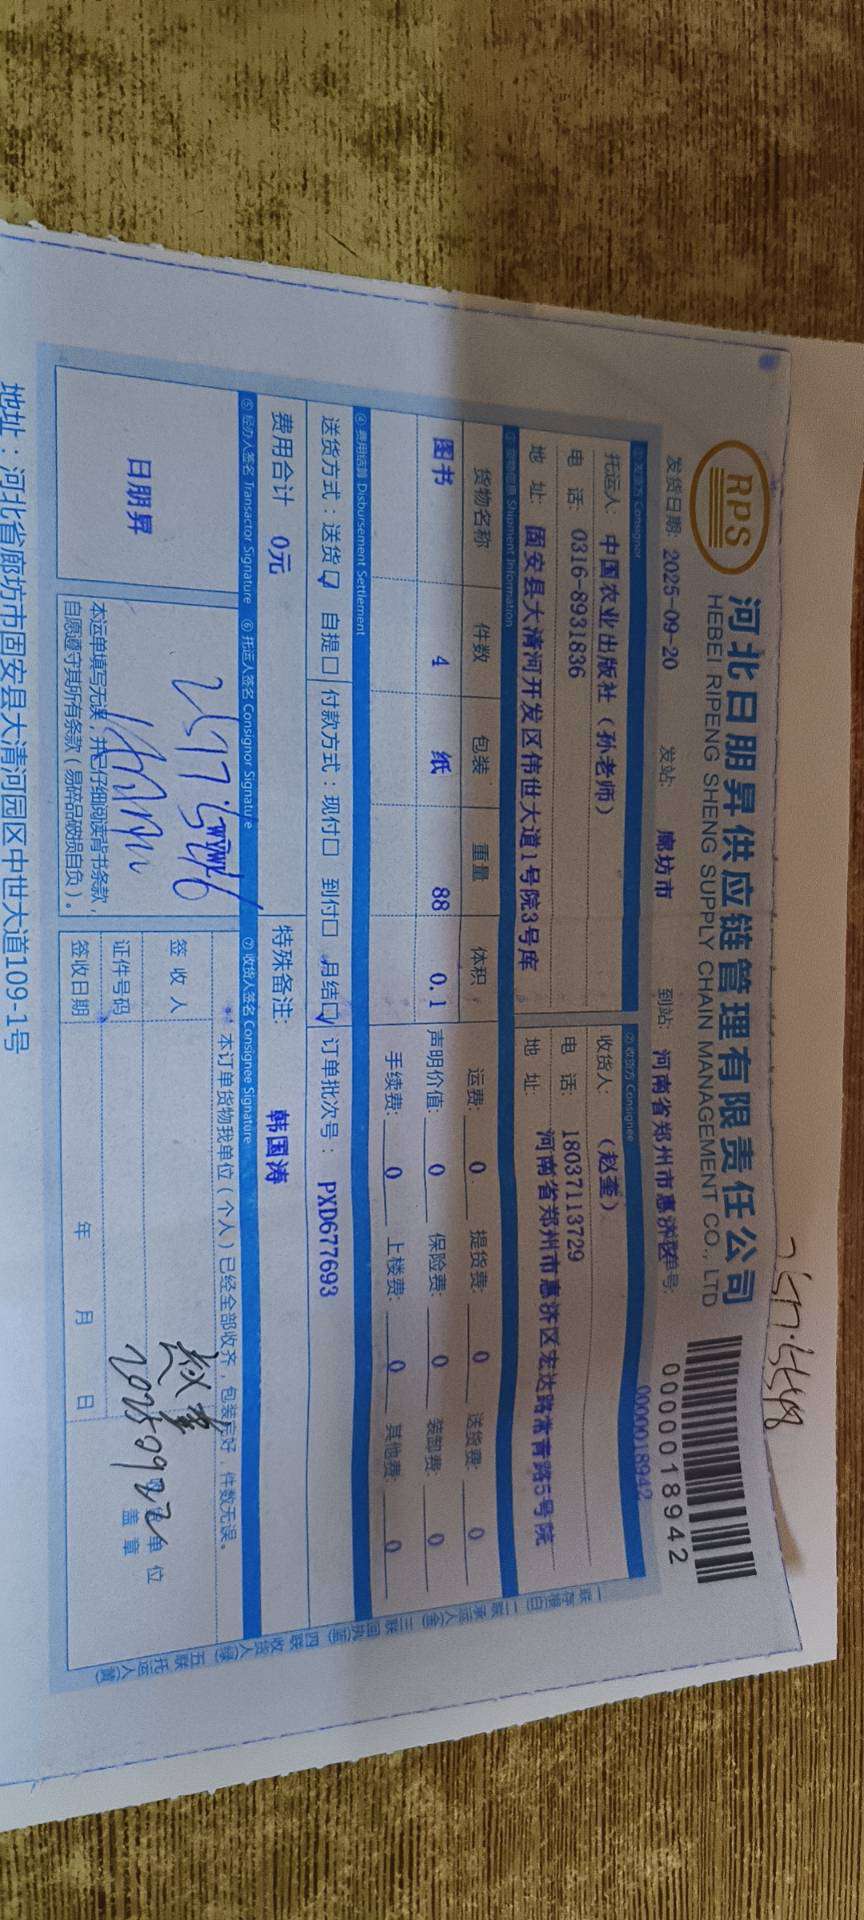 RPS
河北日朋昇供应链管理有限责任公司
HEBEI RIPENG SHENG SUPPLY CHAIN MANAGEMENT CO., LTD
0000018942
发货日期: 2025-09-20 发站: 廊坊市 到站: 河南省郑州市惠济区 单号:
0000018942
① 发货方 Consignor ② 收货方 Consignee
托运人: 中国农业出版社（孙老师） 收货人: （赵奎）
电 话: 0316-8931836 电 话: 18037113729
地 址: 固安县大清河开发区伟世大道1号院3号库 地 址: 河南省郑州市惠济区宏达路常青路5号院
③ 货物信息 Shipment Information
货物名称 件数 包装 重量 体积 运费: 0 提货费: 0 送货费: 0
图书 4 纸 88 0.1 声明价值: 0 保险费: 0 装卸费: 0
手续费: 0 上楼费: 0 其他费: 0
④ 费用结算 Disbursement Settlement
送货方式：送货☑ 自提☐ 付款方式：现付☐ 到付☐ 月结☑ 订单批次号： PXD677693
费用合计 0元 特殊备注: 韩国涛
⑤ 经办人签名 Transactor Signature ⑥ 托运人签名 Consignor Signature ⑦ 收货人签名 Consignee Signature
日朋昇
本订单货物我单位（个人）已经全部收齐，包装完好，件数无误。
签 收 人 赵奎
证件号码 20250922
单 位
盖 章
签收日期 年 月 日
本运单填写无误，并已仔细阅读背书条款，
自愿遵守其所有条款（易碎品破损自负）。
一联存根(白) 二联承运人(金) 三联回执(蓝) 四联收货人(绿) 五联托运人(黄)
地址：河北省廊坊市固安县大清河园区中世大道109-1号